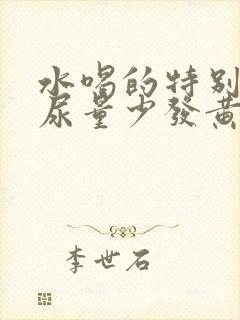 水喝的特别
尿量少發黄
李世石